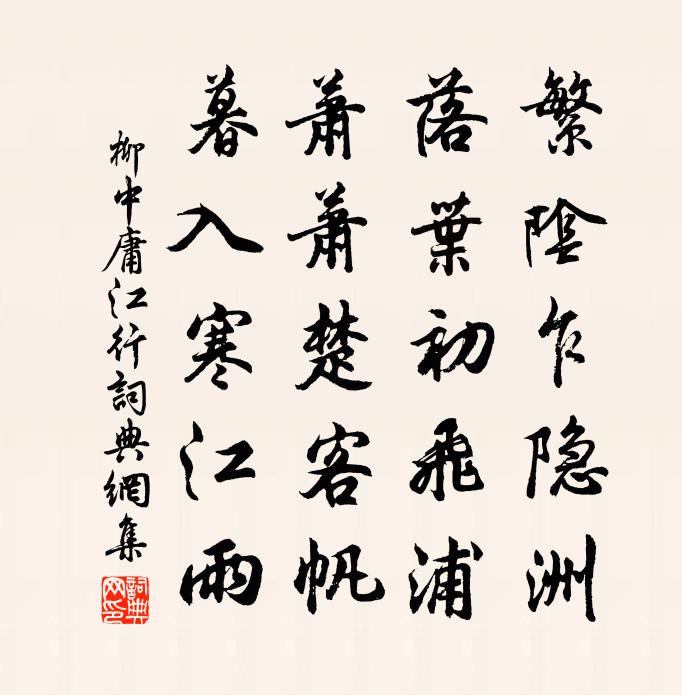 繁陰乍隐洲
落葉初飛浦
蕭蕭楚客帆
暮入寒江雨
柳中庸江行詞典網集
詞典网印